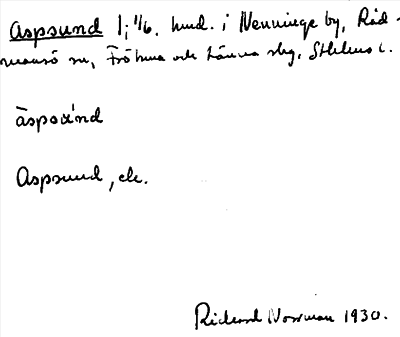 Aspsund 1; 1/6. hmd. i Nenninge by, Råd-
mansö sn, Fröhuna och Länna slg, Sthlms l.
äspsànd
Aspsund, ele.
Richard Norrman 1930.